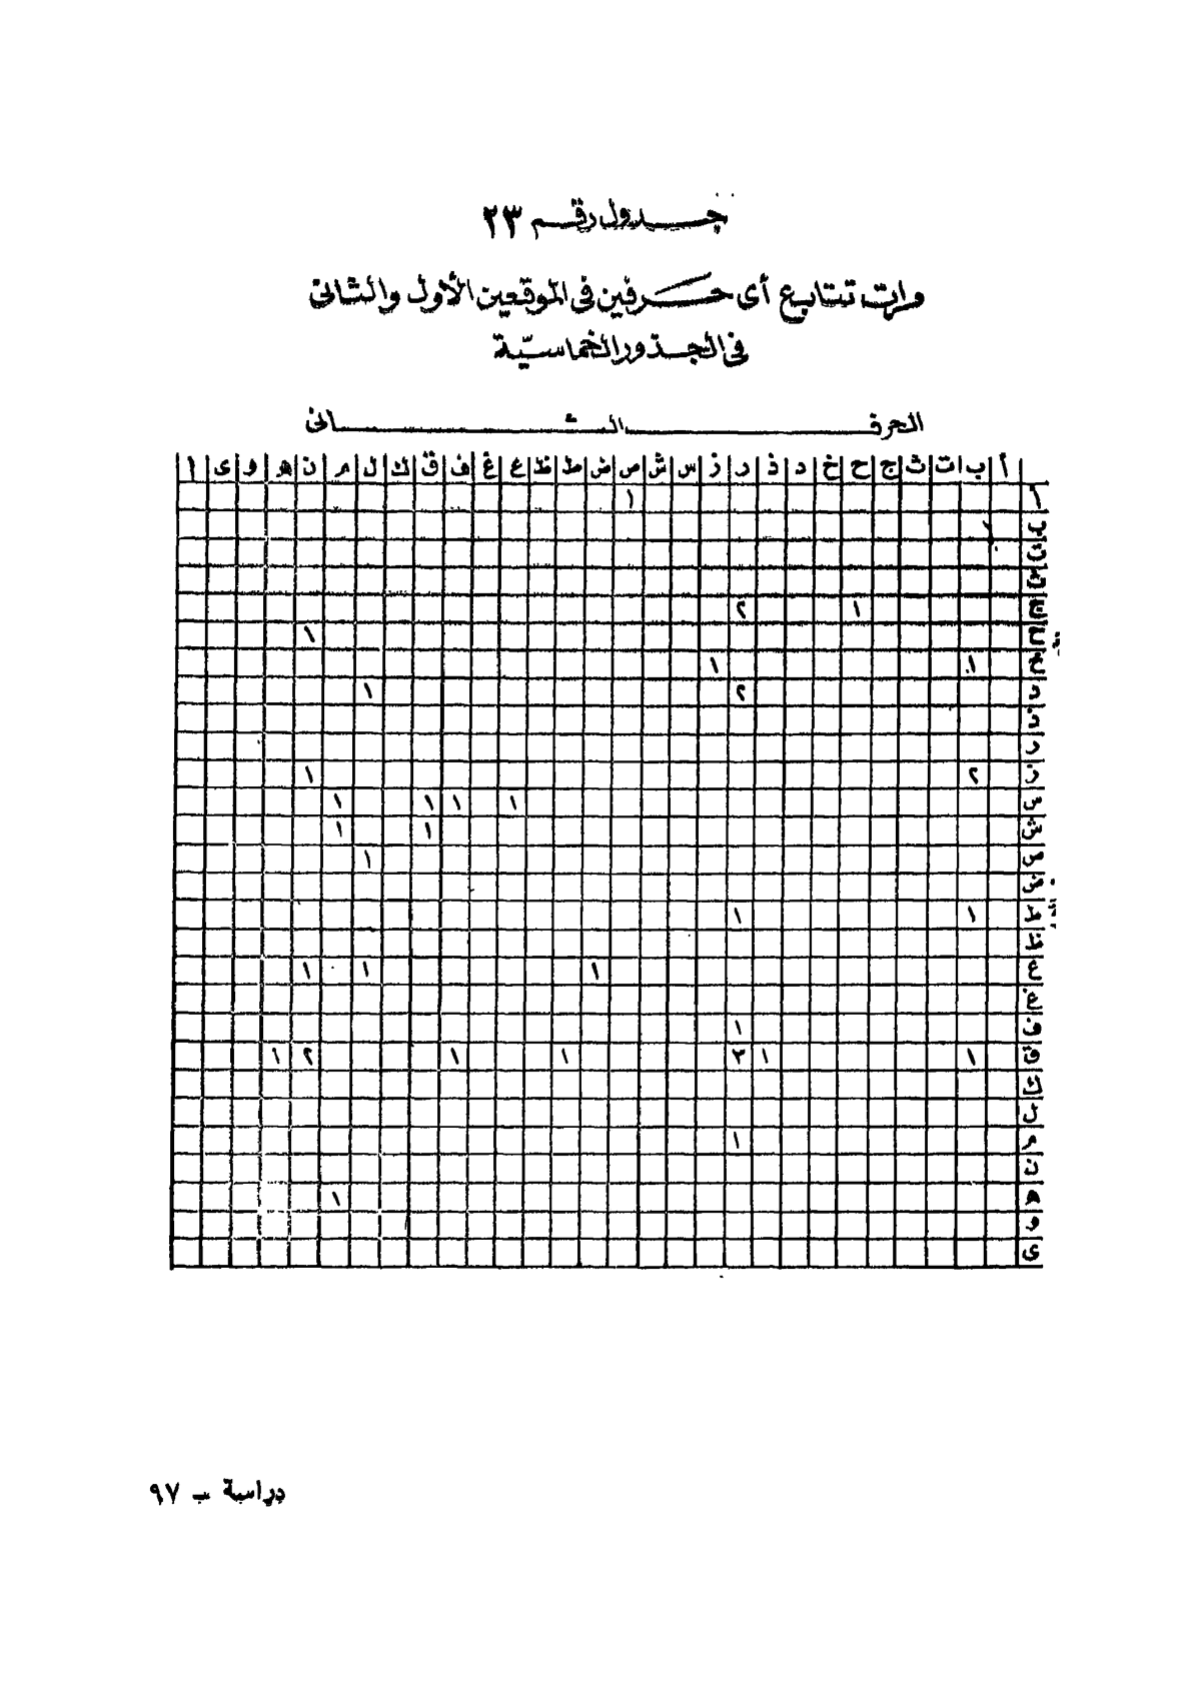 جدول رقم ٢٣
مرات تتابع أى حرفين فى الموقعين الأول والثانى
فى الجذور الخماسيّة
الحرف الثانى
أ ب ت ث ج ح خ د ذ ر ز س ش ص ض ط ظ ع غ ف ق ك ل م ن ه و ى ا
أ ١
ب
ت
ث
ج ١ ٢
ح ١
خ ١ ١
د ٢ ١
ذ
ر
ز ٢ ١
س ١ ١ ١ ١
ش ١ ١
ص ١
ض
ط ١ ١
ظ
ع ١ ١ ١
غ
ف ١
ق ١ ١ ٣ ١ ١ ٢ ١
ك
ل
م ١
ن
ه ١
و
ى
دراسة ـ ٩٧